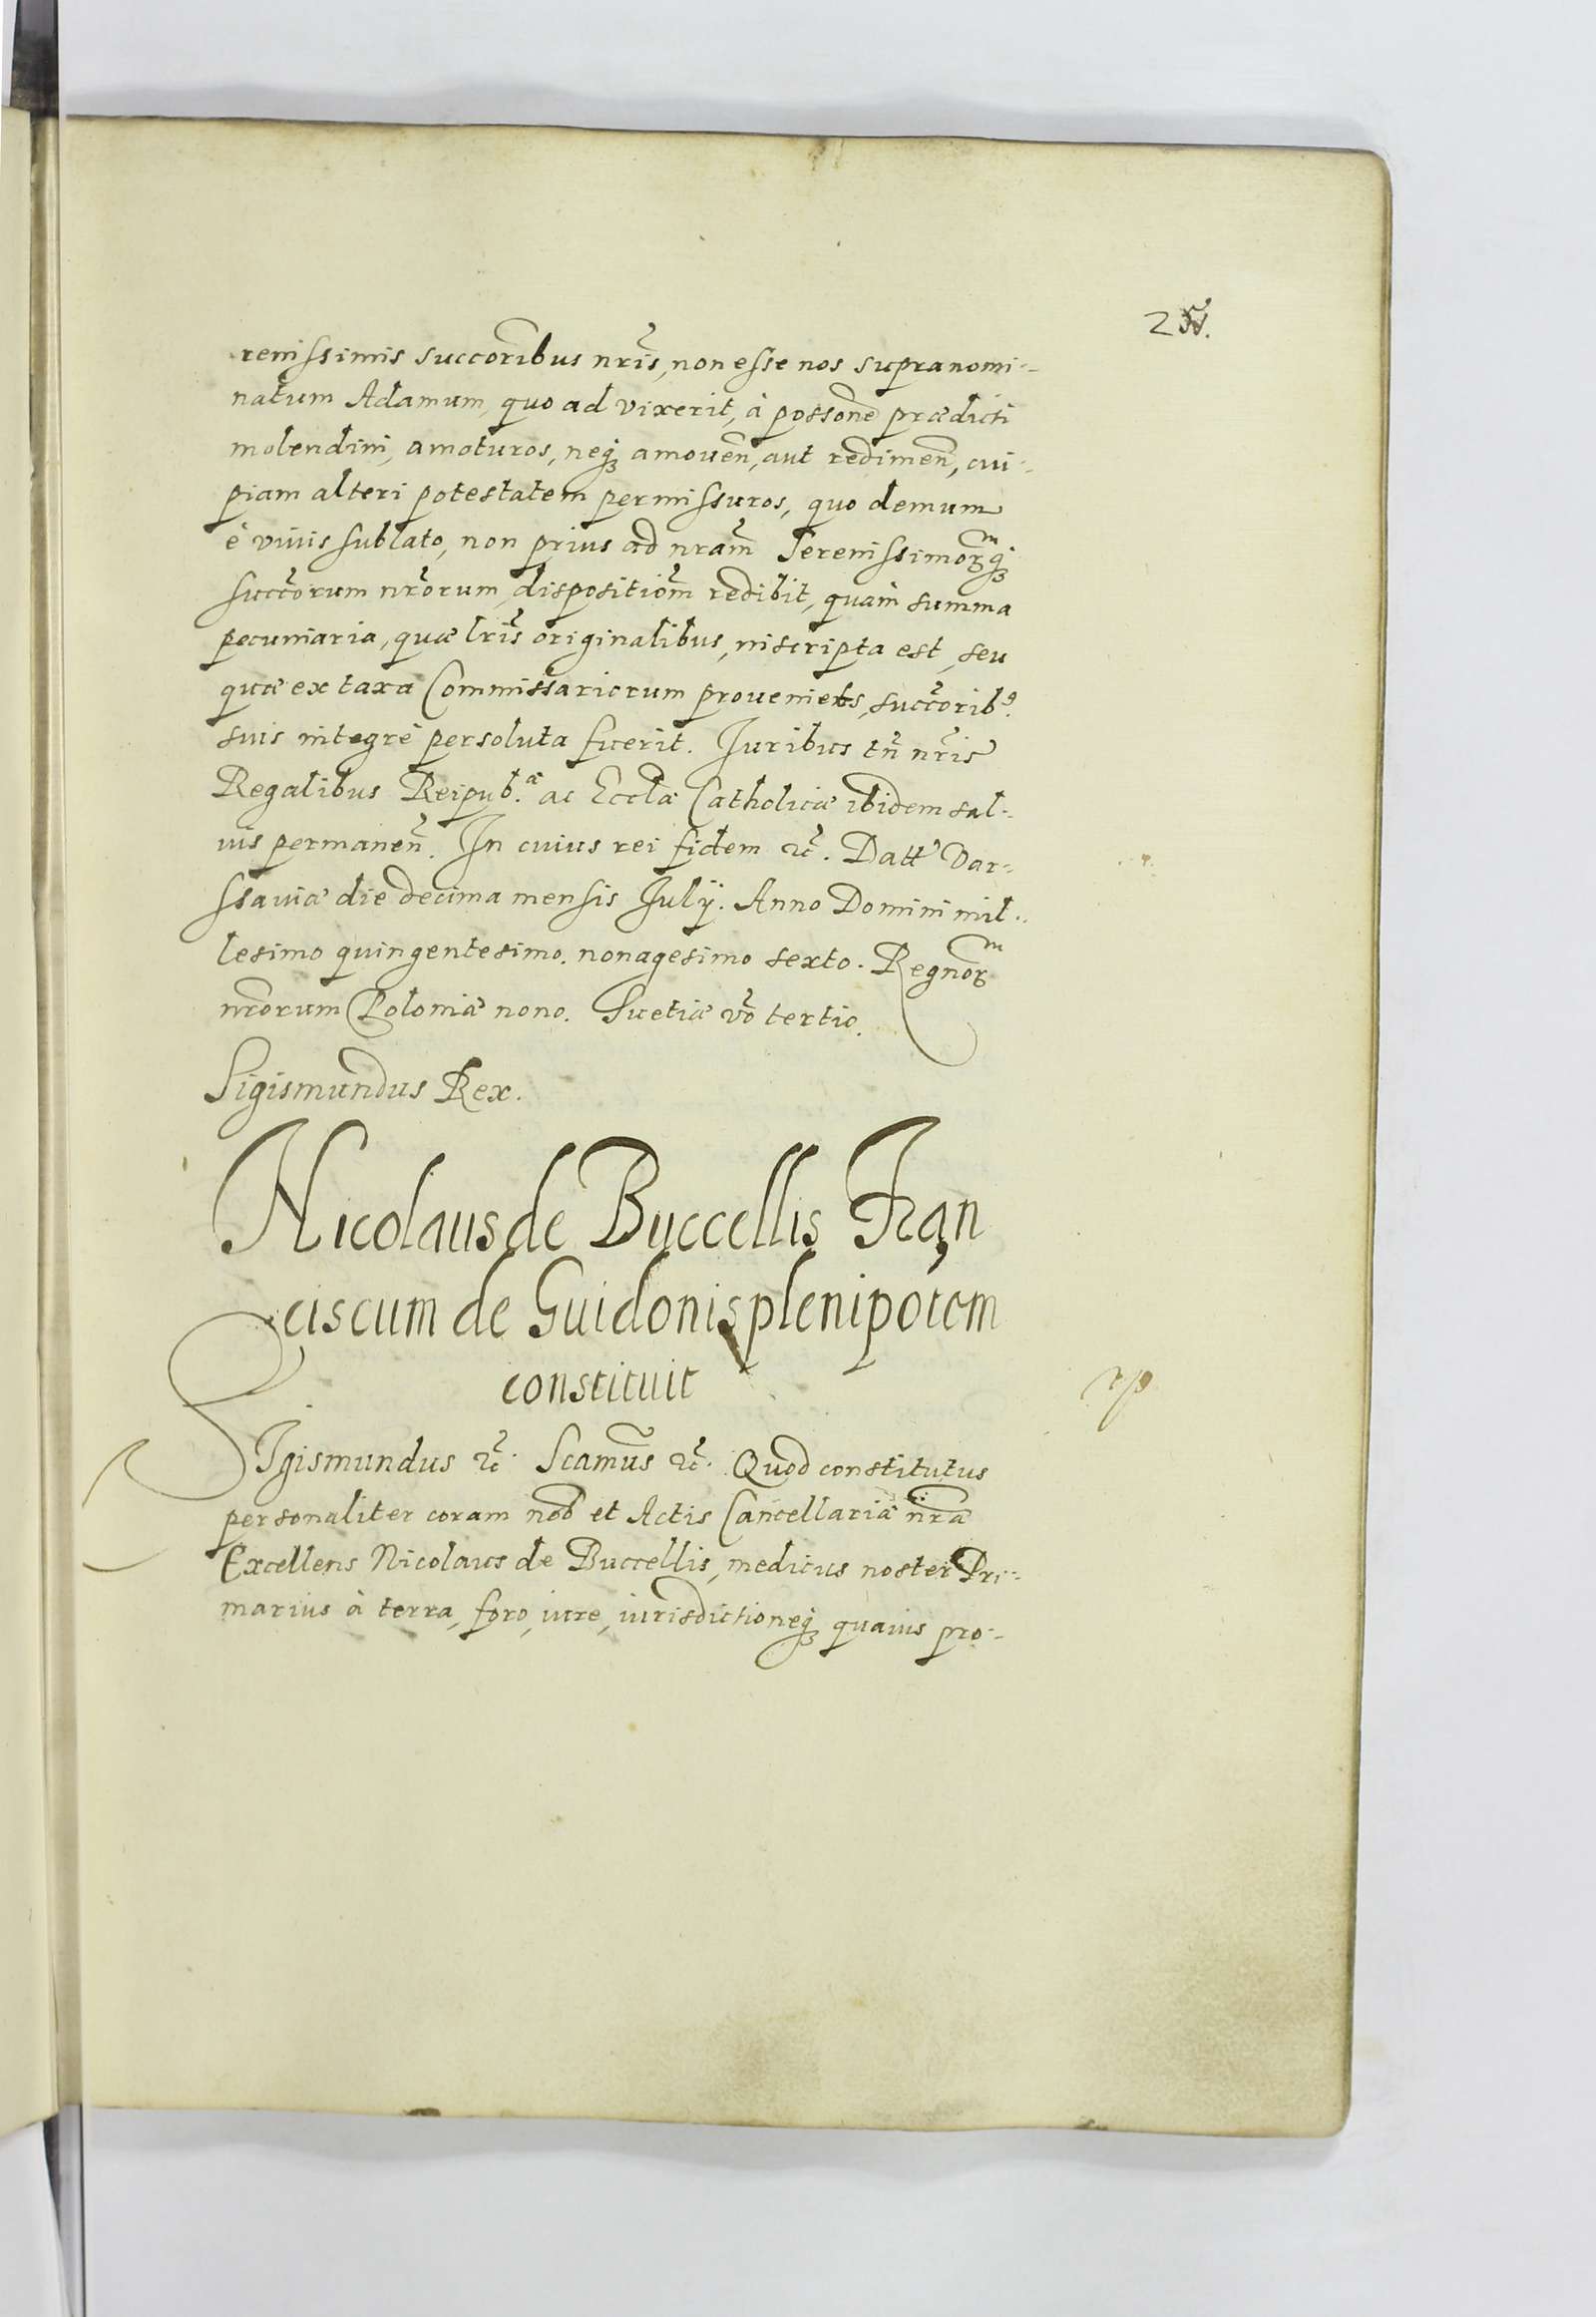 renissimis succoribus nris, non esse nos supranomi-
natum Adamum, quo ad vixerit, à possone prædicti
molendini, amoturos, neq₃ amouen, aut redimen, cui-
piam alteri potestatem permissuros, quo demum
è viuis sublato, non prius ad nram Serenissimorᵐq₃
succorum nrorum, dispositiom redibit, quàm summa
pecuniaria, quæ lris originalibus, inscripta est, seu
quæ ex taxa Commissariorum proueniets, succorib⁹.
suis integrè persoluta fuerit. Juribus tn nris
Regalibus Reipub.æ ac Eccla Catholicæ ibidem sal-
uis permanen. In cuius rei fidem &c. Datt Var-
ssauiæ die decima mensis Julÿ. Anno Domini mil-
lesimo quingentesimo. nonagesimo sexto. Regnorᵐ
nrorum Poloniæ nono. Suetiæ vo tertio.
Sigismundus Rex.
Nicolaus de Buccellis Fran
ciscum de Guidonis plenipotem
constituit
SIgismundus &c. Scamus &c. Quod constitutus
personaliter coram nob et Actis Cancellariæ nræ
Excellens Nicolaus de Buccellis, medicus noster Pri-
marius à terra, foro, iure, iurisdictioneq₃ quauis pro-